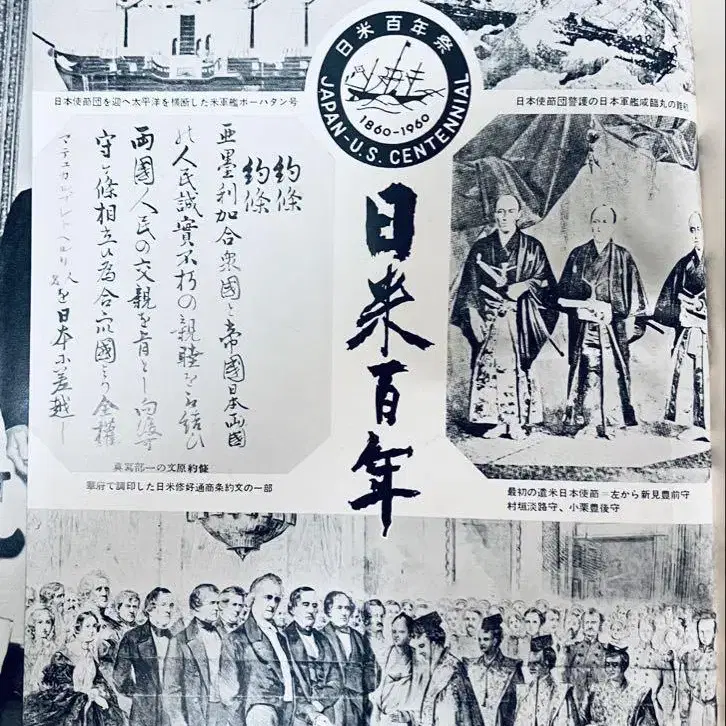 日本使節団を迎へ太平洋を横断した米軍艦ポーハタン号
日米百年祭
1860-1960
JAPAN-U.S. CENTENNIAL
日本使節団警護の日本軍艦咸臨丸の
日米百年
約條
約條
亜墨利加合衆國と帝國日本両國
の人民誠實不朽の親睦を取結ひ
両國人民の交親を旨とし向後可
守ヶ條相立ひ為合衆國より全權
を日本に差越し
眞寫部一の文原約條
華府で調印した日米修好通商条約文の一部
最初の遣米日本使節＝左から新見豊前守
村垣淡路守、小栗豊後守